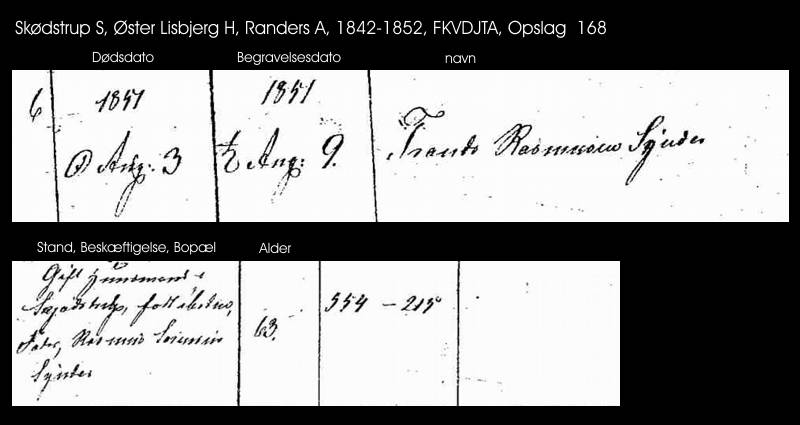 Skødstrup S, Øster Lisbjerg H, Randers A, 1842-1852, FKVDJTA, Opslag 168
Dødsdato Begravelsesdato navn
6 1851 1851
Aug: 3 Aug: 9. Frands Rasmusen Synder
Stand, Beskæftigelse, Bopæl Alder
Gift Huusmand i
Skjødstrup, født ibidem, 63. 554 - 215
Fader, Rasmus Sørensen
Synder